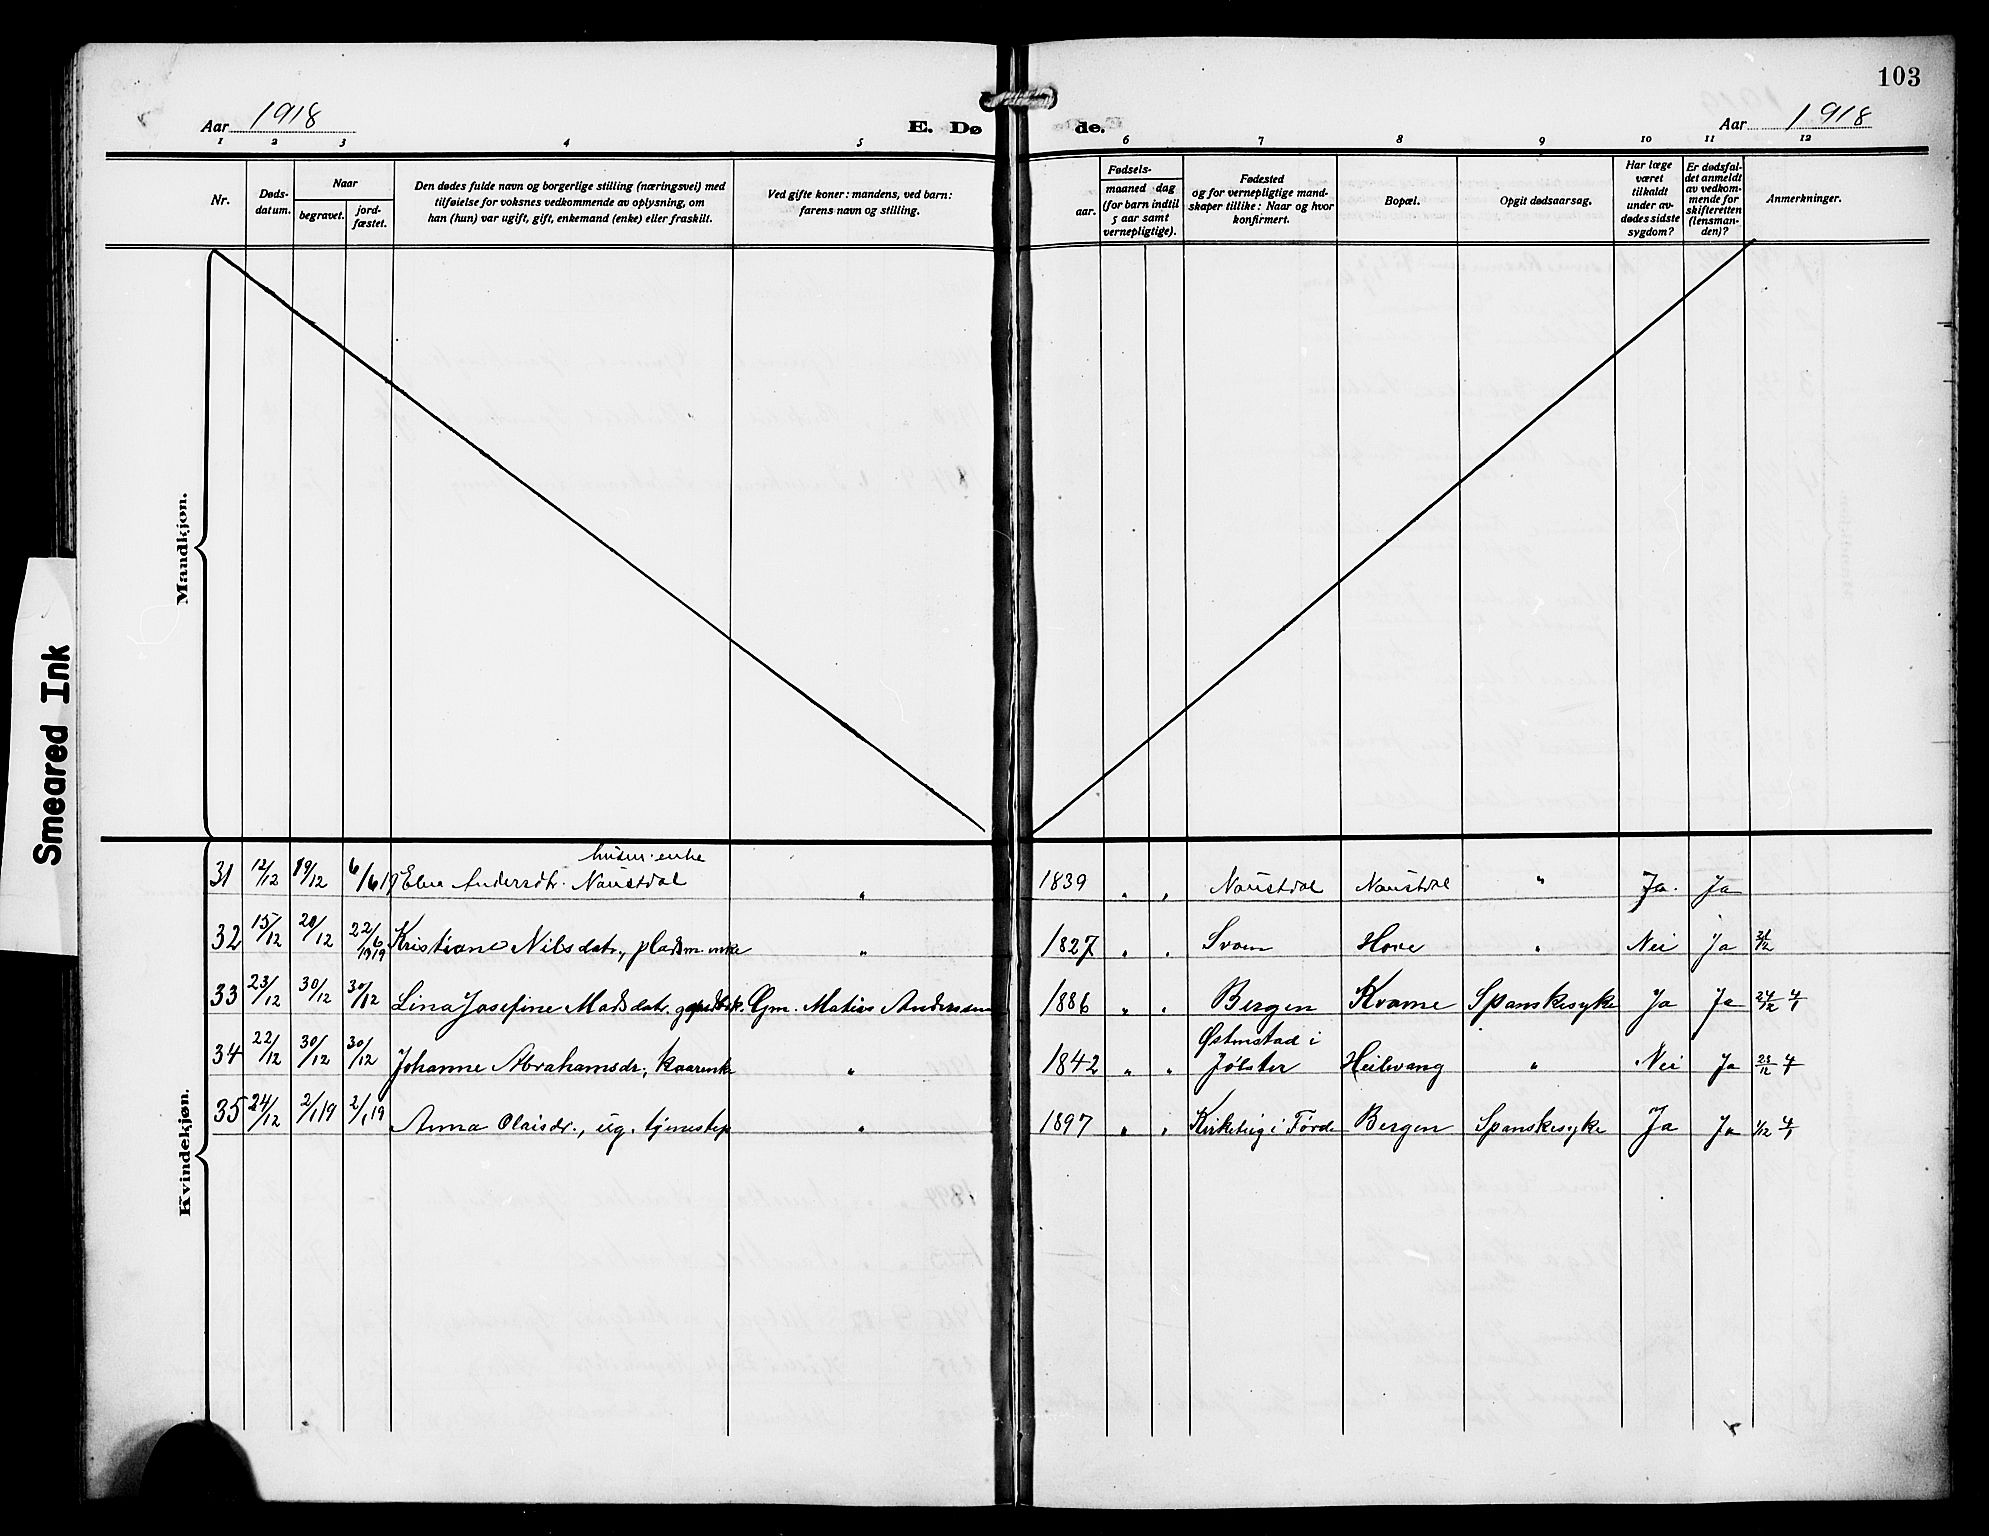 103
Aar 1918
E. Dø
de.
Aar 1918
1 2 3 4 5 6 7 8 9 10 11 12
Nr.
Døds-
datum.
Naar
begravet.
jord-
fæstet.
Den dødes fulde navn og borgerlige stilling (næringsvei) med
tilføielse for voksnes vedkommende av oplysning, om
han (hun) var ugift, gift, enkemand (enke) eller fraskilt.
Ved gifte koner: mandens, ved barn:
farens navn og stilling.
Fødsels-
aar.
maaned dag
(for barn indtil
5 aar samt
vernepligtige).
Fødested
og for vernepligtige mand-
skaper tillike: Naar og hvor
konfirmert.
Bopæl.
Opgit dødsaarsag.
Har læge
været
tilkaldt
under av-
dødes sidste
sygdom?
Er dødsfal-
det anmeldt
av vedkom-
mende for
skifteretten
(lensman-
den)?
Anmerkninger.
Mandkjøn.
Smeared Ink
Kvindekjøn.
31 12/12 19/12 6/6 19 Andersdtr. Naustdal enke " 1839 " " Naustdal Naustdal " Ja. Ja
32 15/12 20/12 22/6 1919 Kristiane Nilsdatr., pladsm. enke " 1827 " " Svoen Hove " Nei Ja
33 23/12 30/12 30/12 Lina Josefine Madsdatr. Gm. Matias Anderssen 1886 " " Bergen Kvame Spanskesyke Ja Ja 24/12 4/1
34 22/12 30/12 30/12 Johanne Abrahamsdr., kaarenke " 1842 " " Østenstad i
Jølster Heilevang " Nei Ja 23/12 4/1
35 24/12 2/1 19 2/1 19 Anna Olaisdr., ug. tjenestep " 1897 " " Kirketeig i Førde Bergen Spanskesyke Ja Ja 1/12 4/1